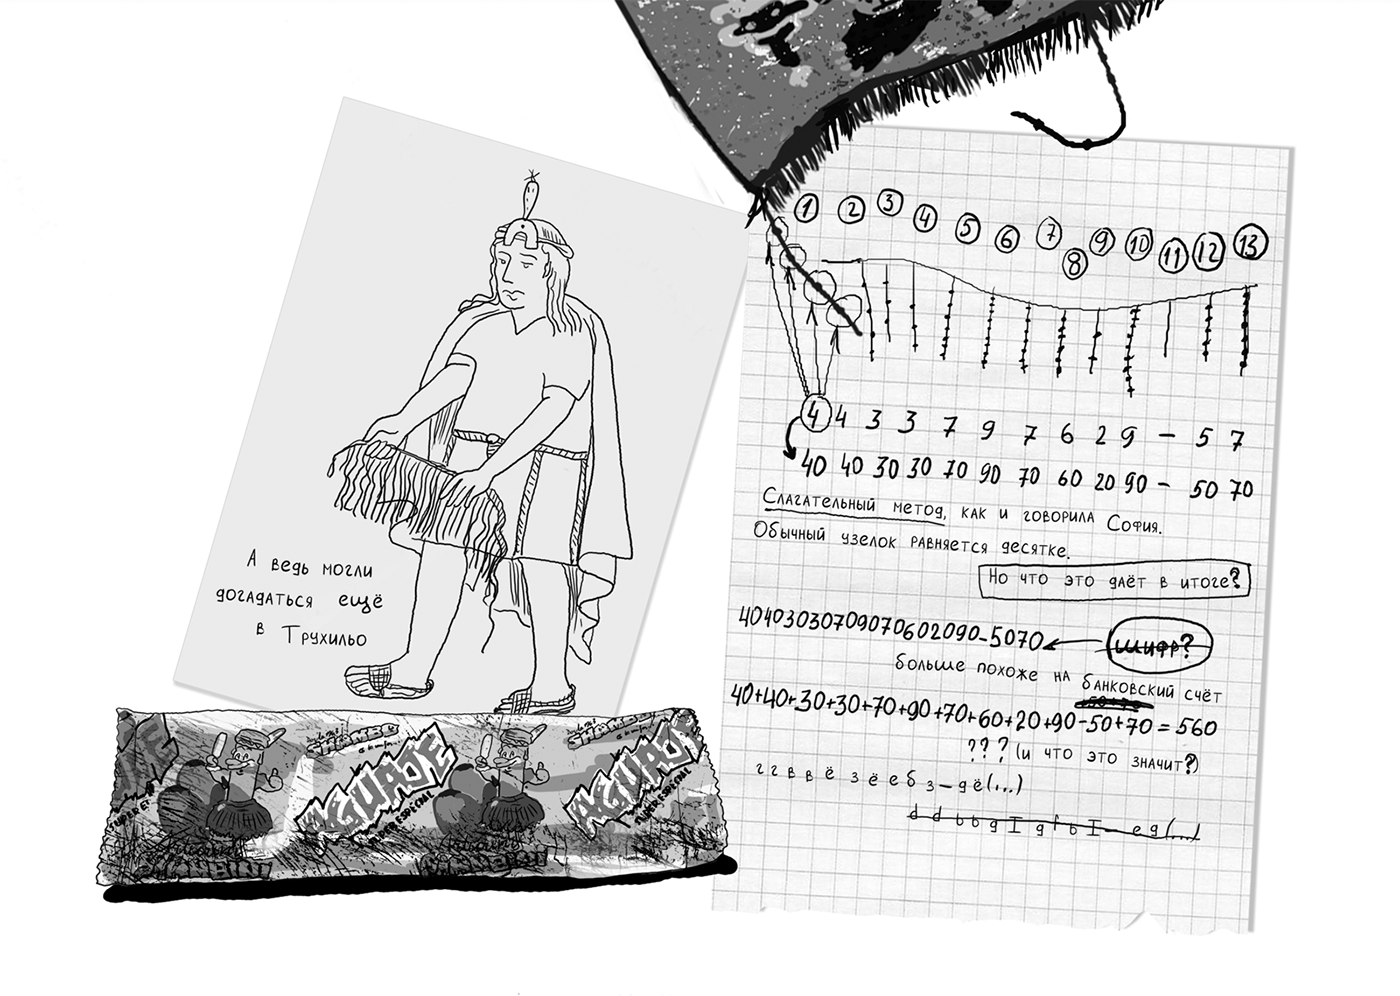 А ведь могли
догадаться ещё
в Трухильо
1 2 3 4 5 6 7 8 9 10 11 12 13
4 4 3 3 7 9 7 6 2 9 – 5 7
40 40 30 30 70 90 70 60 20 90 – 50 70
Слагательный метод, как и говорила София.
Обычный узелок равняется десятке.
Но что это даёт в итоге?
40403030709070602090-5070
шифр?
больше похоже на банковский счёт
40+40+30+30+70+90+70+60+20+90-50+70=560
??? (и что это значит?)
г г в в ё з ё е б з – д ё (...)
d d b b g I g f b I – e g (...)
AGUAJE
SUPER ESPECIAL
AGUAJE
SUPER ESPECIAL